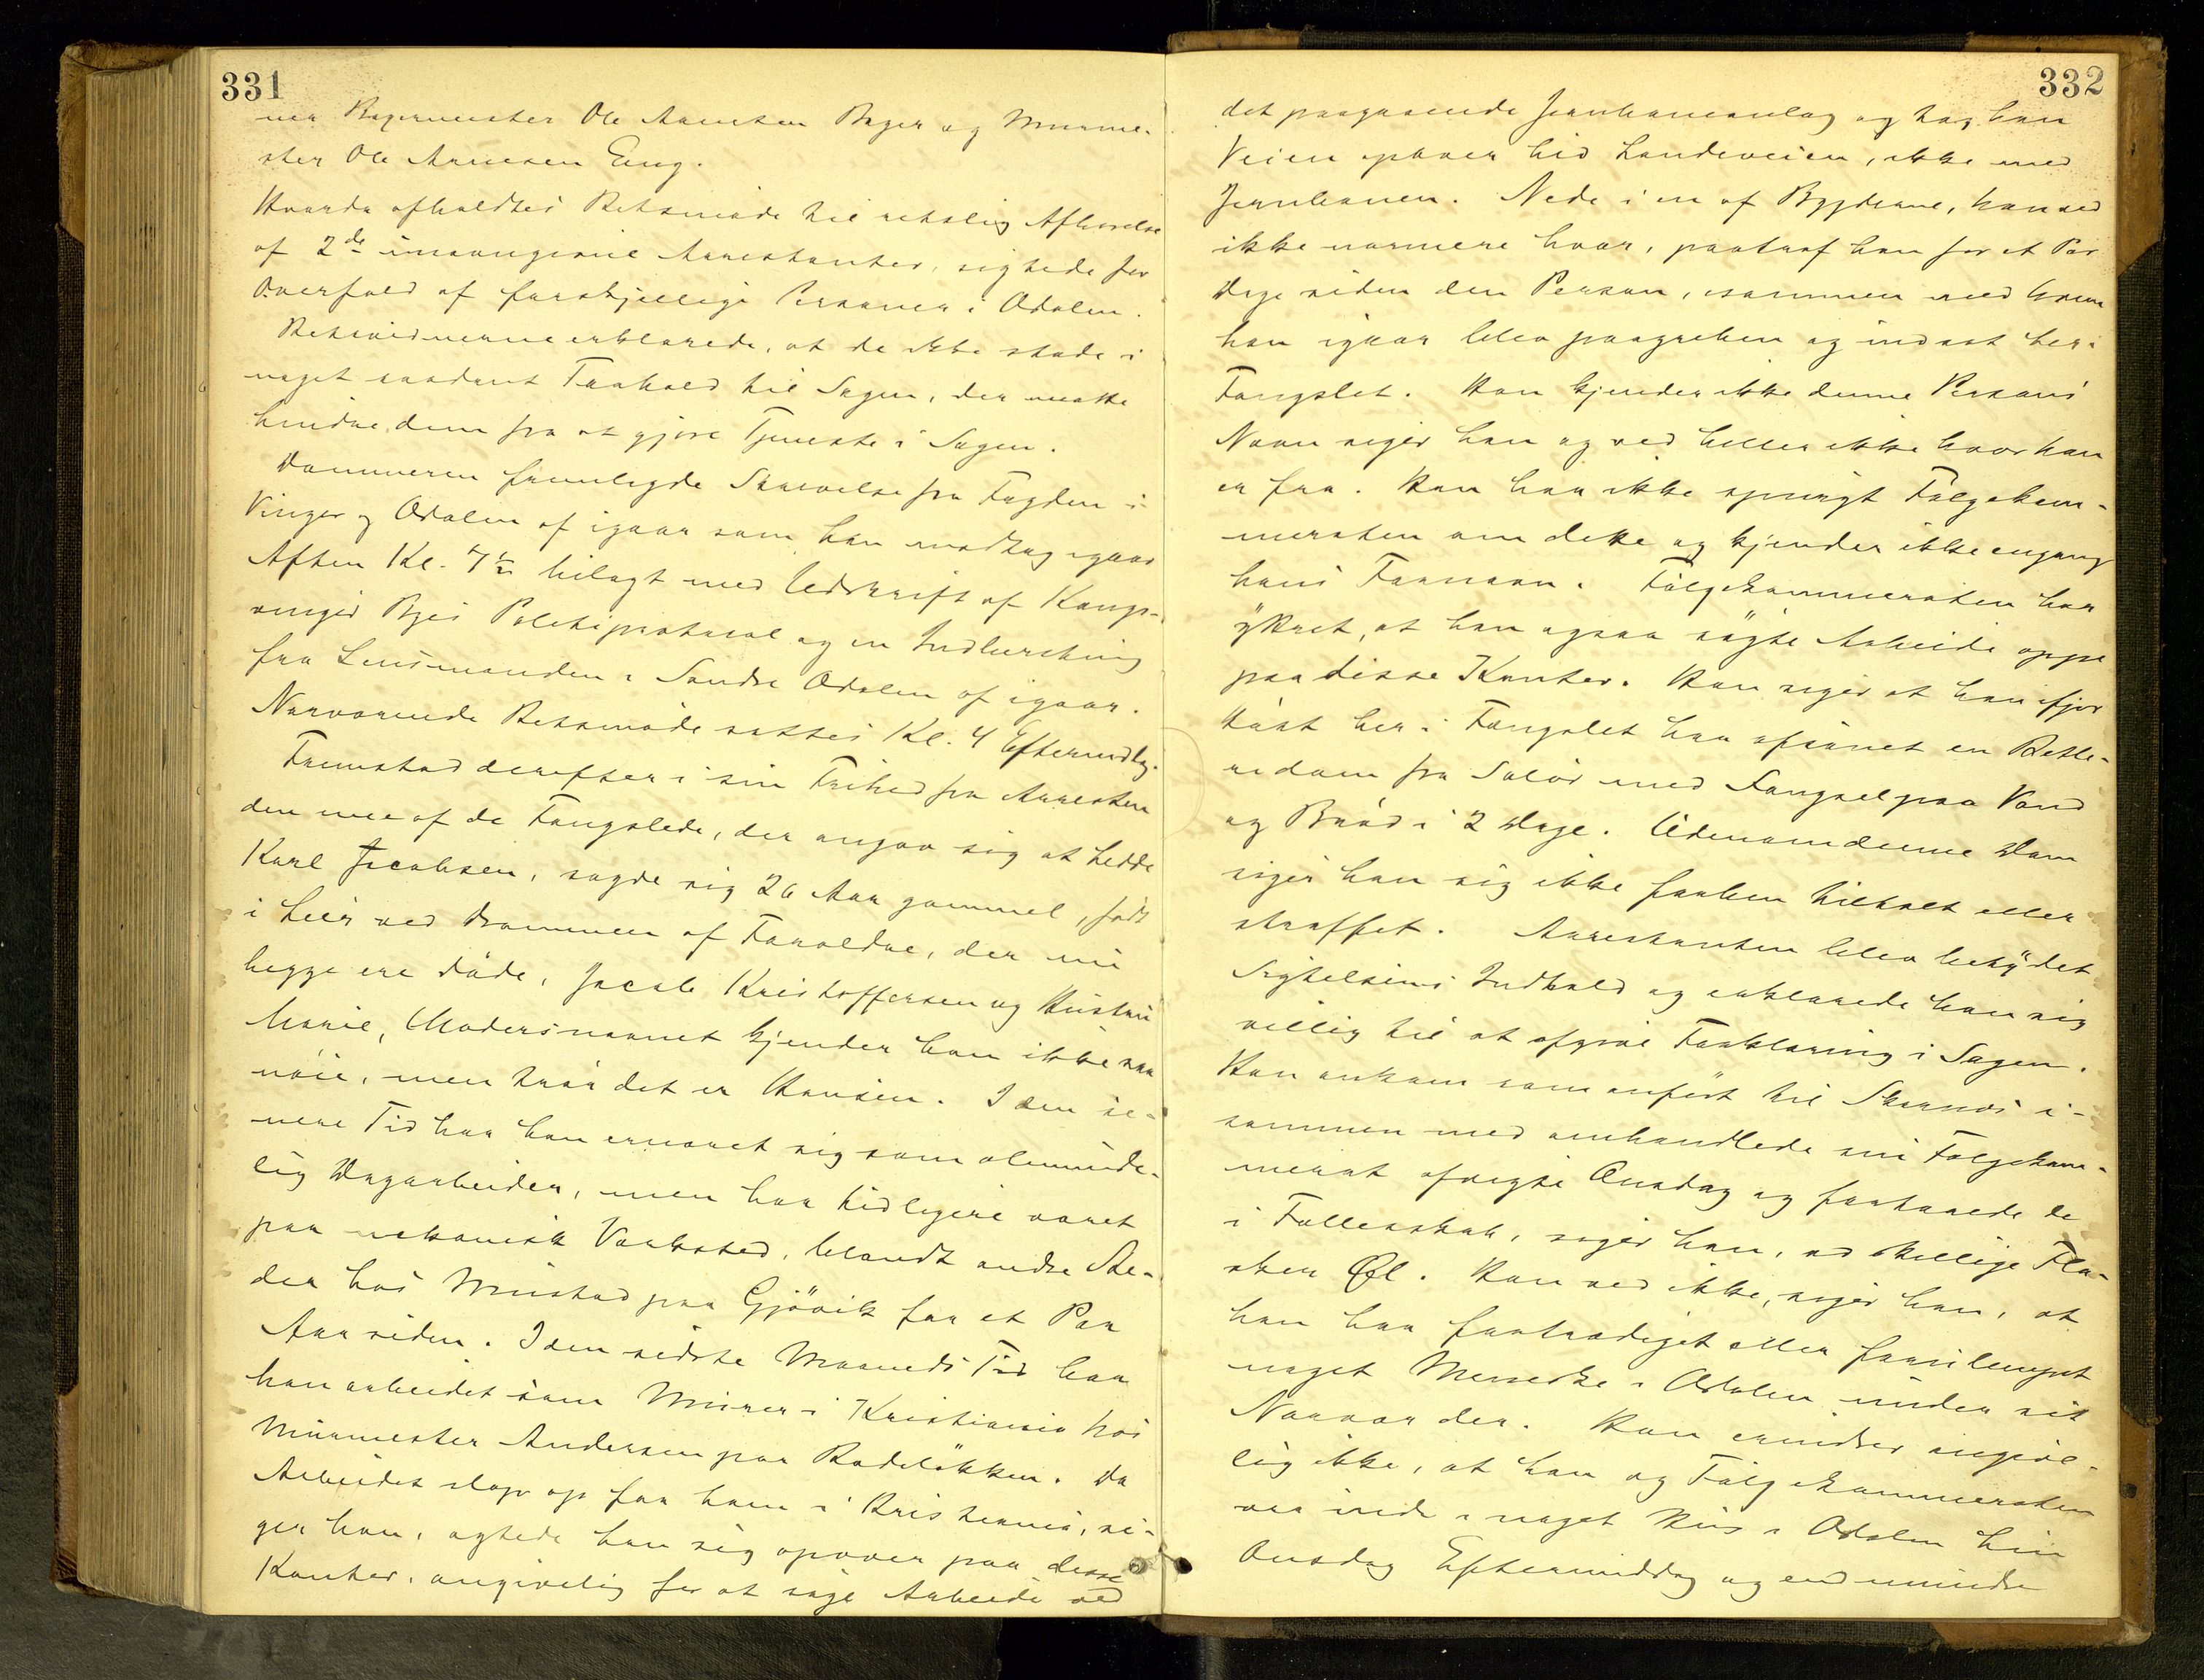 331
ner Bagermester Ole Arnesen Bager og Murme-
ster Ole Arnesen Eeng.
Hvorda afholdtes Retsmøde til retslig Afhørelse
af 2de mangivne Arrestanter, sigtede for
Overfald af forskjellige Personer i Odalen.
Retsvidnerne erklærede, at de ikke stode i
noget saadant Forhold til Sagen, der maatte
hindre dem fra at gjøre Tjeneste i Sagen.
Dommeren fremlagde Skrivelse fra Fogden i
Vinger og Odalen af igaar som han modtog igaar
Aften Kl. 7½ bilagt med Udskrift af Kongs-
vinger Byes Politiprotocol og en Indberetning
fra Lensmanden i Søndre Odalen af igaar.
Nærværende Retsmøde sattes Kl. 4 Eftermdag.
Fremstod derefter i sin Frihed fra Arresten
den ene af de Fængslede, der angav sig at hedde
Karl Jacobsen, sagde sig 26 Aar gammel, født
i Lier ved Drammen af Forældre, der nu
begge ere døde, Jacob Kristoffersen og Hustru
Marie, Modersnavnet kjender han ikke saa
nøie, men tror det er Hansen. I den se-
nere Tid har han ernæret sig som alminde-
lig Dagarbeider, men har tidligere været
paa mekanisk Værksted, blandt andre Ste-
der hos Mustad paa Gjøvik for et Par
Aar siden. I den sidste Maaneds Tid har
han arbeidet som Murer i Kristiania hos
Murmester Andersen paa Rodeløkken. Da
Arbeidet slap op for ham i Kristiania, si-
ger han, agtede han sig opover paa disse
Kanter, angivelig for at søge Arbeide ved
332
det paagaaende Jernbaneanlæg og tog han
Veien opover hid Landeveien, ikke med
Jernbanen. Nede i en af Bygderne, han ved
ikke nærmere hvor, paatraf han for et Par
Dage siden den Person, sammen med hvem
han igaar blev paagreben og indsat her i
Fængslet. Han kjender ikke denne Persons
Navn siger han og ved heller ikke hvor han
er fra. Han har ikke spurgt Følgekam-
meraten om dette og kjender ikke engang
hans Fornavn. Følgekammeraten har
yttret, at han ogsaa søgte Arbeide oppe
paa disse Kanter. Han siger at han ifjor
Høst her i Fængslet har afsonet en Betle-
redom fra Solør med Fængsel paa Vand
og Brød i 2 Dage. Udenom denne Dom
siger han sig ikke forhen tiltalt eller
straffet. Arrestanten blev betydet
Sigtelsens Indhold og erklærede han sig
villig til at afgive Forklaring i Sagen.
Han ankom som anført til Skarnes i-
sammen med omhandlede sin Følgekam-
merat afvigte Onsdag og fortærede de
i Fællesskab, siger han, ad skillige Fla-
sker Øl. Han ved ikke, siger han, at
han har fortrædiget eller forulempet
noget Menneske i Odalen under sit
Nærvær der. Han erindrer angive-
lig ikke, at han og Følgekammeraten
var inde i noget Hus i Odalen hin
Onsdag Eftermiddag og end mindre